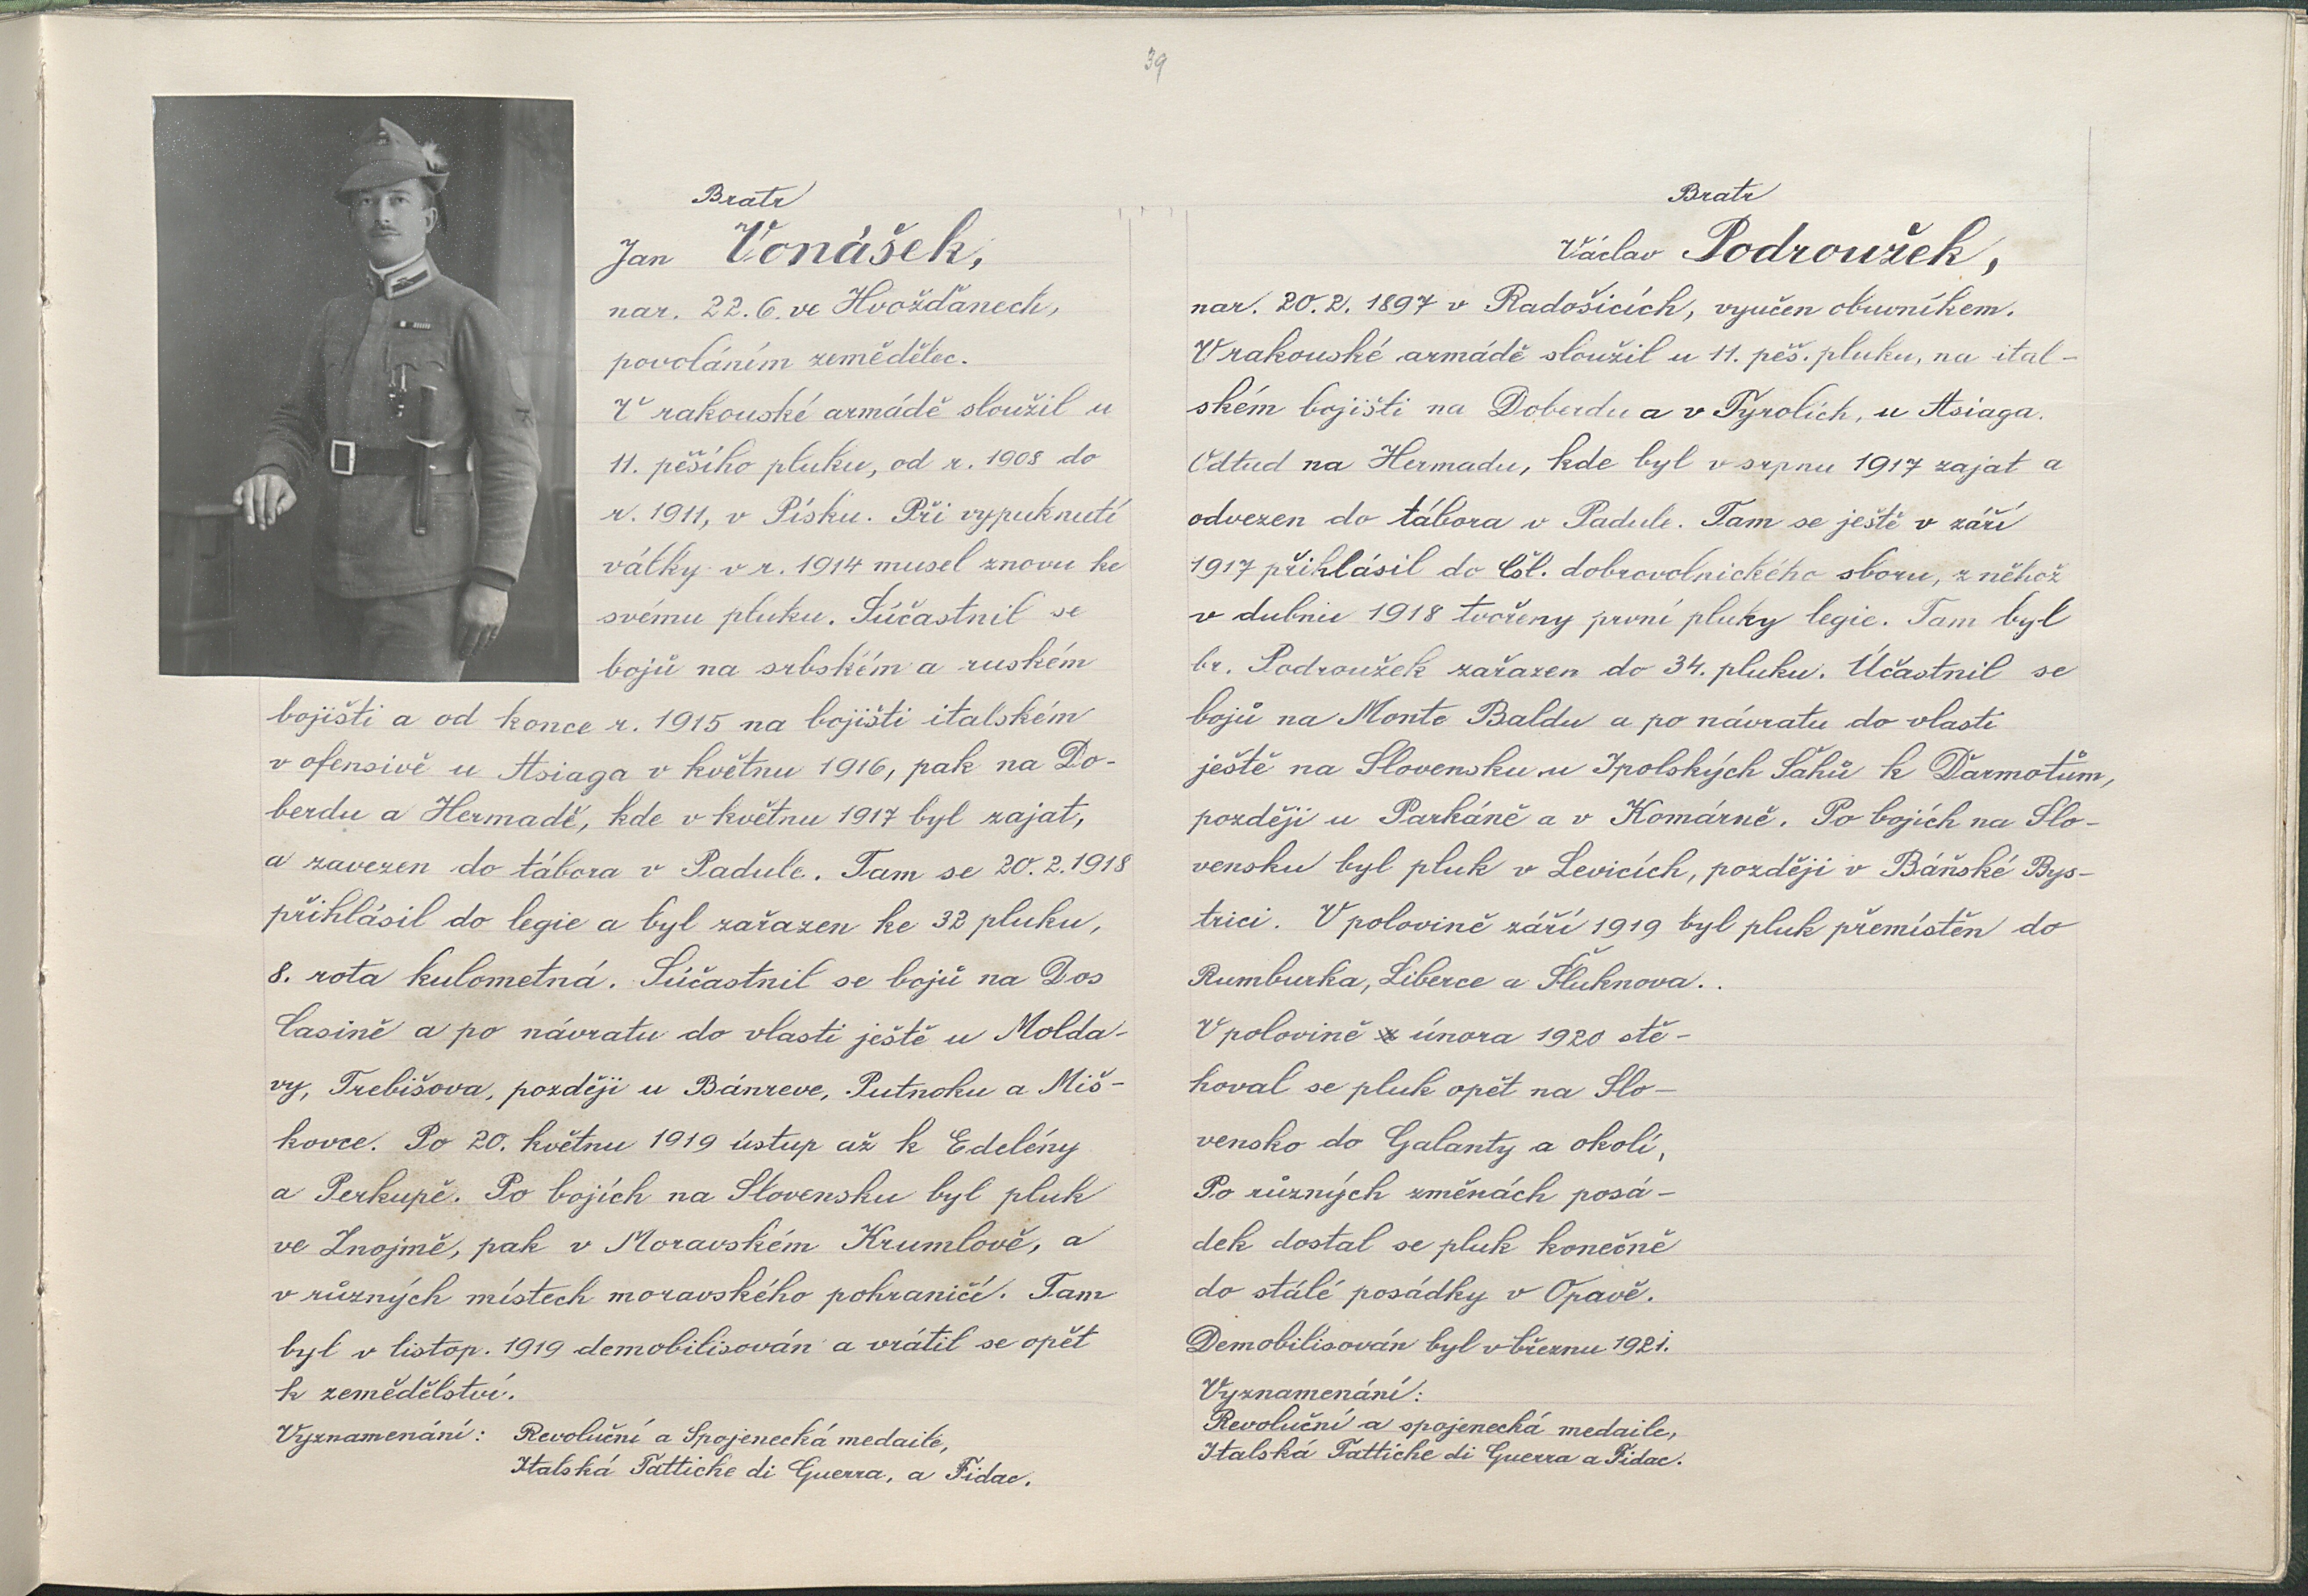 39
Bratr
Jan Vonášek,
nar. 22.6. ve Hvožďanech,
povoláním zemědělec.
V rakouské armádě sloužil u
11. pěšího pluku, od r. 1908 do
r. 1911, v Písku. Při vypuknutí
války v r. 1914 musel znovu ke
svému pluku. Súčastnil se
bojů na srbském a ruském
bojišti a od konce r. 1915 na bojišti italském
v ofensivě u Asiaga v květnu 1916, pak na Do-
berdu a Hermadě, kde v květnu 1917 byl zajat,
a zavezen do tábora v Padule. Tam se 20.2.1918
přihlásil do legie a byl zařazen ke 32 pluku,
8. rota kulometná. Súčastnil se bojů na Dos
Casině a po návratu do vlasti ještě u Molda-
vy, Trebišova, později u Bánreve, Putnoku a Miš-
kovce. Po 20. květnu 1919 ústup až k Edelény
a Perkupě. Po bojích na Slovensku byl pluk
ve Znojmě, pak v Moravském Krumlově, a
v různých místech moravského pohraničí. Tam
byl v listop. 1919 demobilisován a vrátil se opět
k zemědělství.
Vyznamenání: Revoluční a Spojenecká medaile,
Italská Fattiche di Guerra, a Fidac.
Bratr
Václav Podroužek,
nar. 20.2. 1897 v Radošicích, vyučen obuvníkem.
V rakouské armádě sloužil u 11. pěš. pluku, na ital-
ském bojišti na Doberdu a v Tyrolích, u Asiaga.
Odtud na Hermadu, kde byl v srpnu 1917 zajat a
odvezen do tábora v Padule. Tam se ještě v září
1917 přihlásil do Čsl. dobrovolnického sboru, z něhož
v dubnu 1918 tvořeny první pluky legie. Tam byl
br. Podroužek zařazen do 34. pluku. Účastnil se
bojů na Monte Baldu a po návratu do vlasti
ještě na Slovensku u Ipolských Šahů k Ďarmotům,
později u Parkáně a v Komárně. Po bojích na Slo-
vensku byl pluk v Levicích, později v Báňské Bys-
trici. V polovině září 1919 byl pluk přemístěn do
Rumburka, Liberce a Šluknova..
V polovině února 1920 stě-
hoval se pluk opět na Slo-
vensko do Galanty a okolí,
Po různých změnách posá-
dek dostal se pluk konečně
do stálé posádky v Opavě.
Demobilisován byl v březnu 1921.
Vyznamenání:
Revoluční a spojenecká medaile,
Italská Fattiche di Guerra a Fidac.